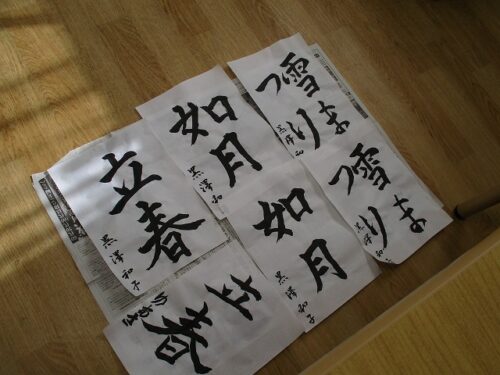 立春
黒澤和子
如月
黒澤和
雪ま
つり
黒澤和
如月
黒澤和子
雪ま
つり
黒澤和
立春